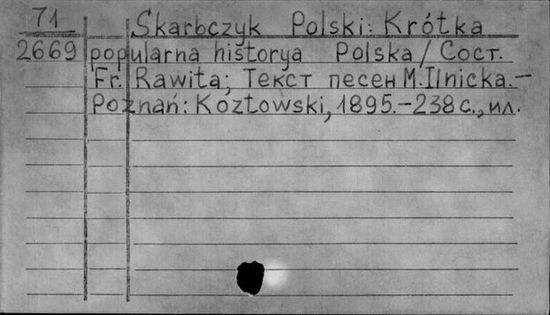 71
2669
Skarbczyk Polski: Krótka
popularna historya Polska / Сост.
Fr. Rawita; Текст песен M. Ilnicka. —
Poznań: Koztowski, 1895. — 238 с., ил.